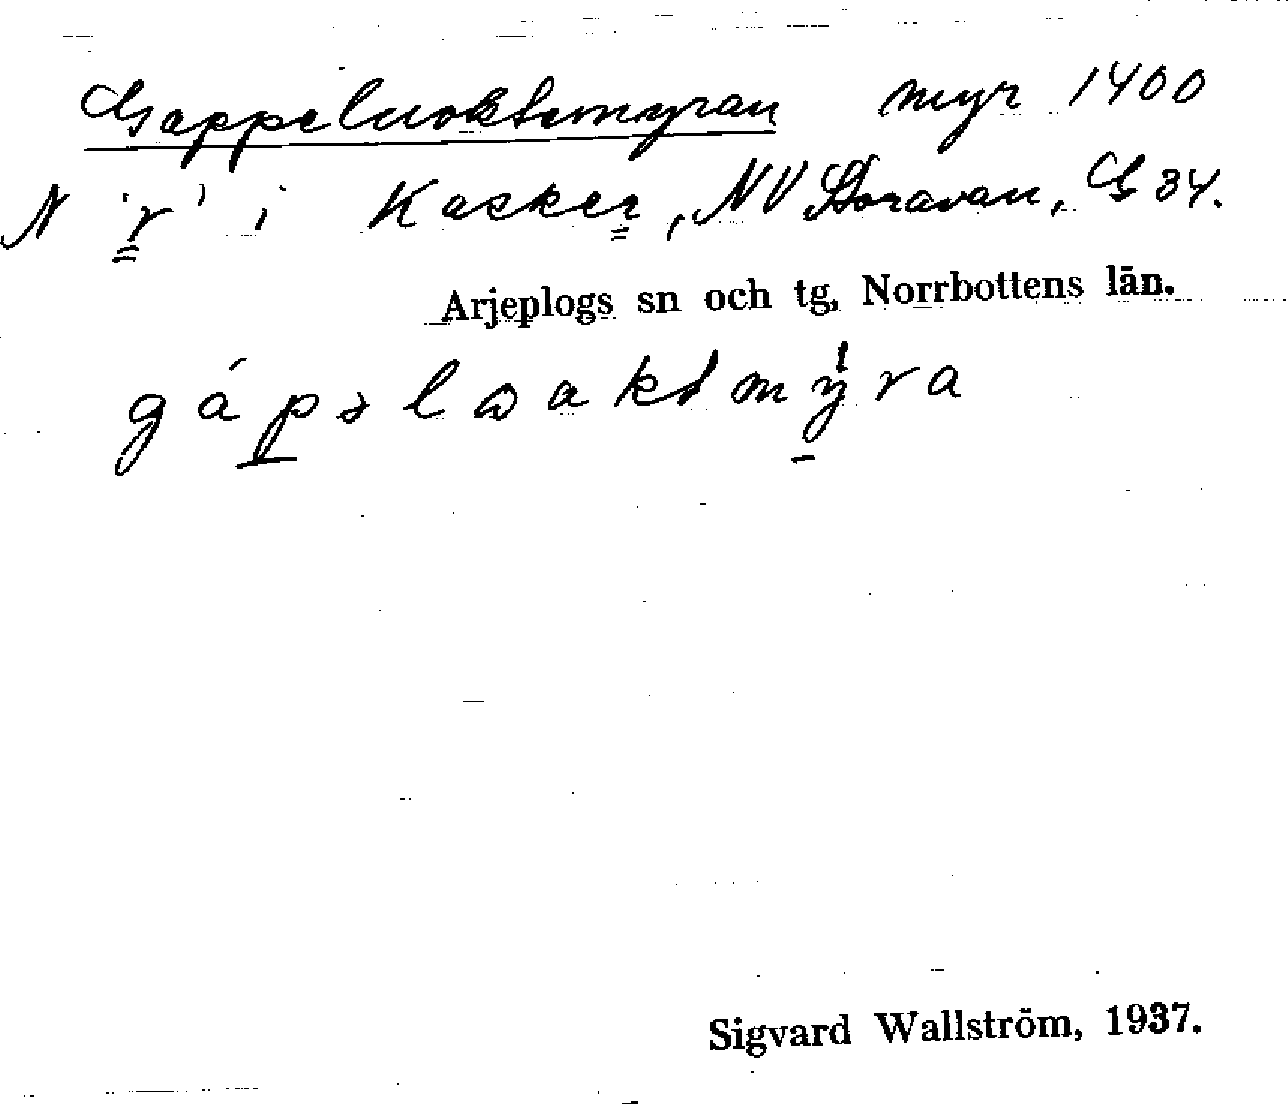 Gappeluoktemyran myr 1400
N 'r' i Kasker, NV Storavan, G 34.
Arjeplogs sn och tg, Norrbottens län.
gápəlωaktmýra
Sigvard Wallström, 1937.